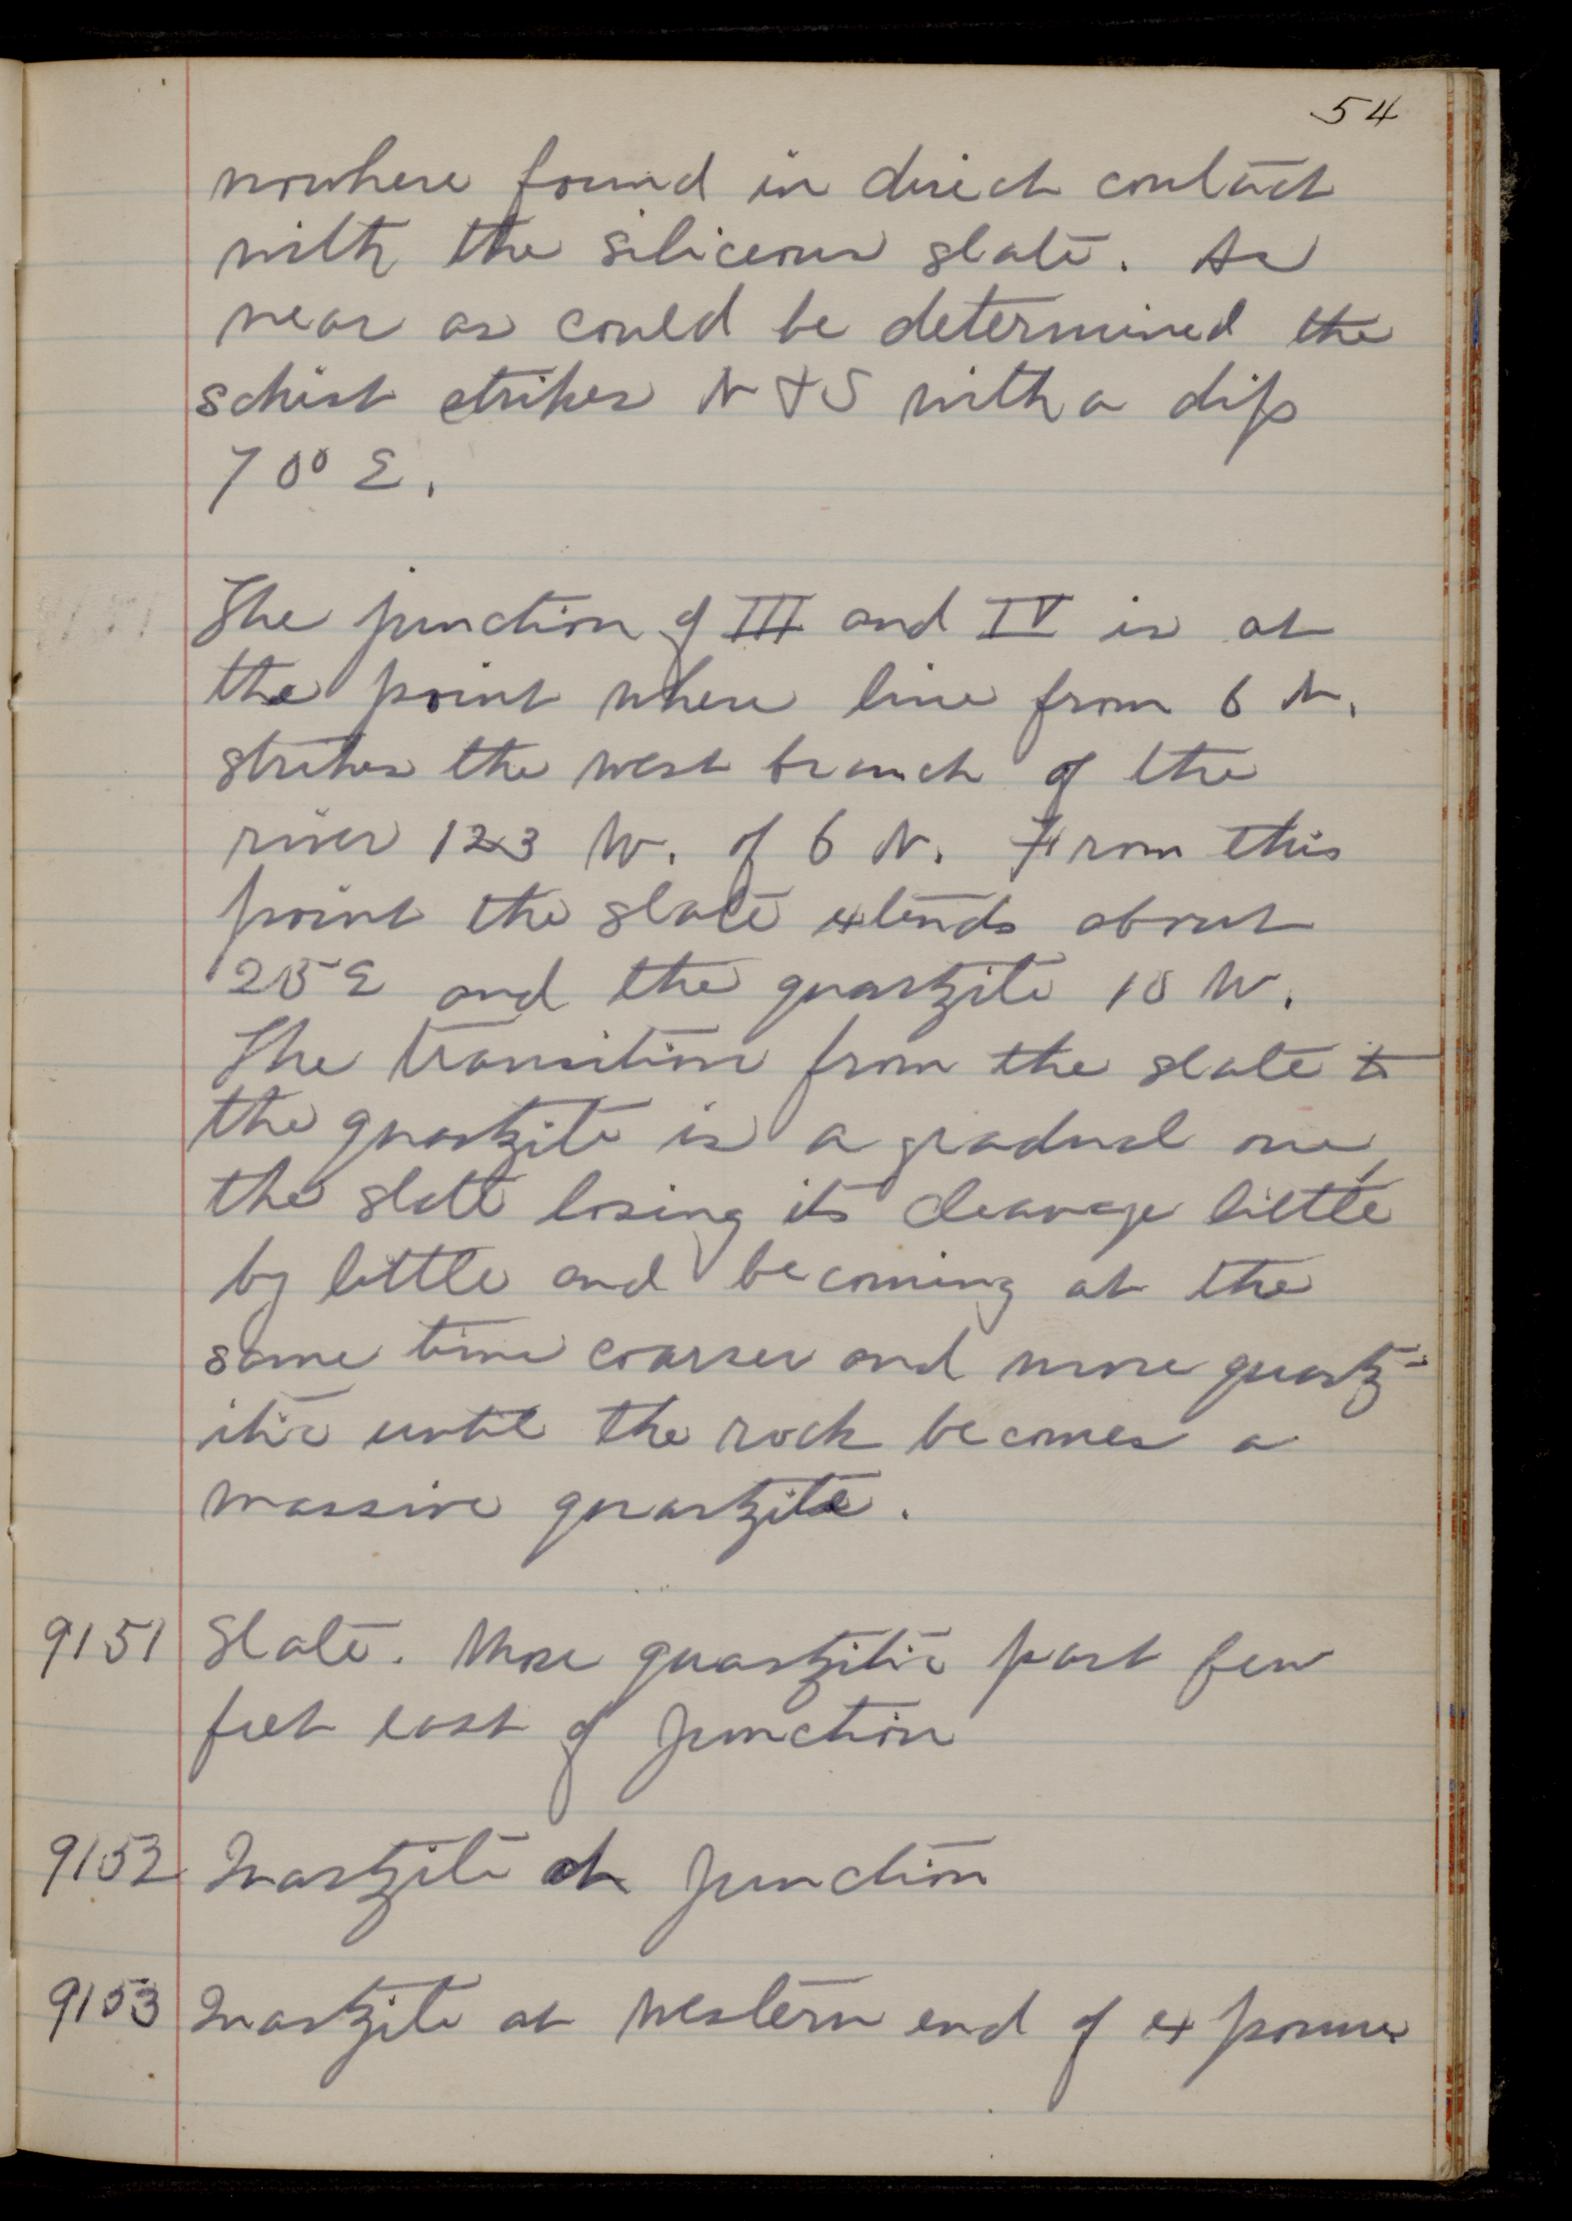 54
nowhere found in direct contact
with the siliceous slate. As
near as could be determined the
schist strikes N & S with a dip
70° E.
The junction of III and IV is at
the point where line from 6 N.
strikes the west branch of the
river 123 W. of 6 N. From this
point the slate extends about
25 E and the quartzite 10 W.
The transition from the slate to
the quartzite is a gradual one,
the slate losing its cleavage little
by little and becoming at the
same time coarser and more quartz-
itic until the rock becomes a
massive quartzite.
9151 Slate. More quartzitic part few
feet east of junction
9152 Quartzite at junction
9153 Quartzite at western end of exposure